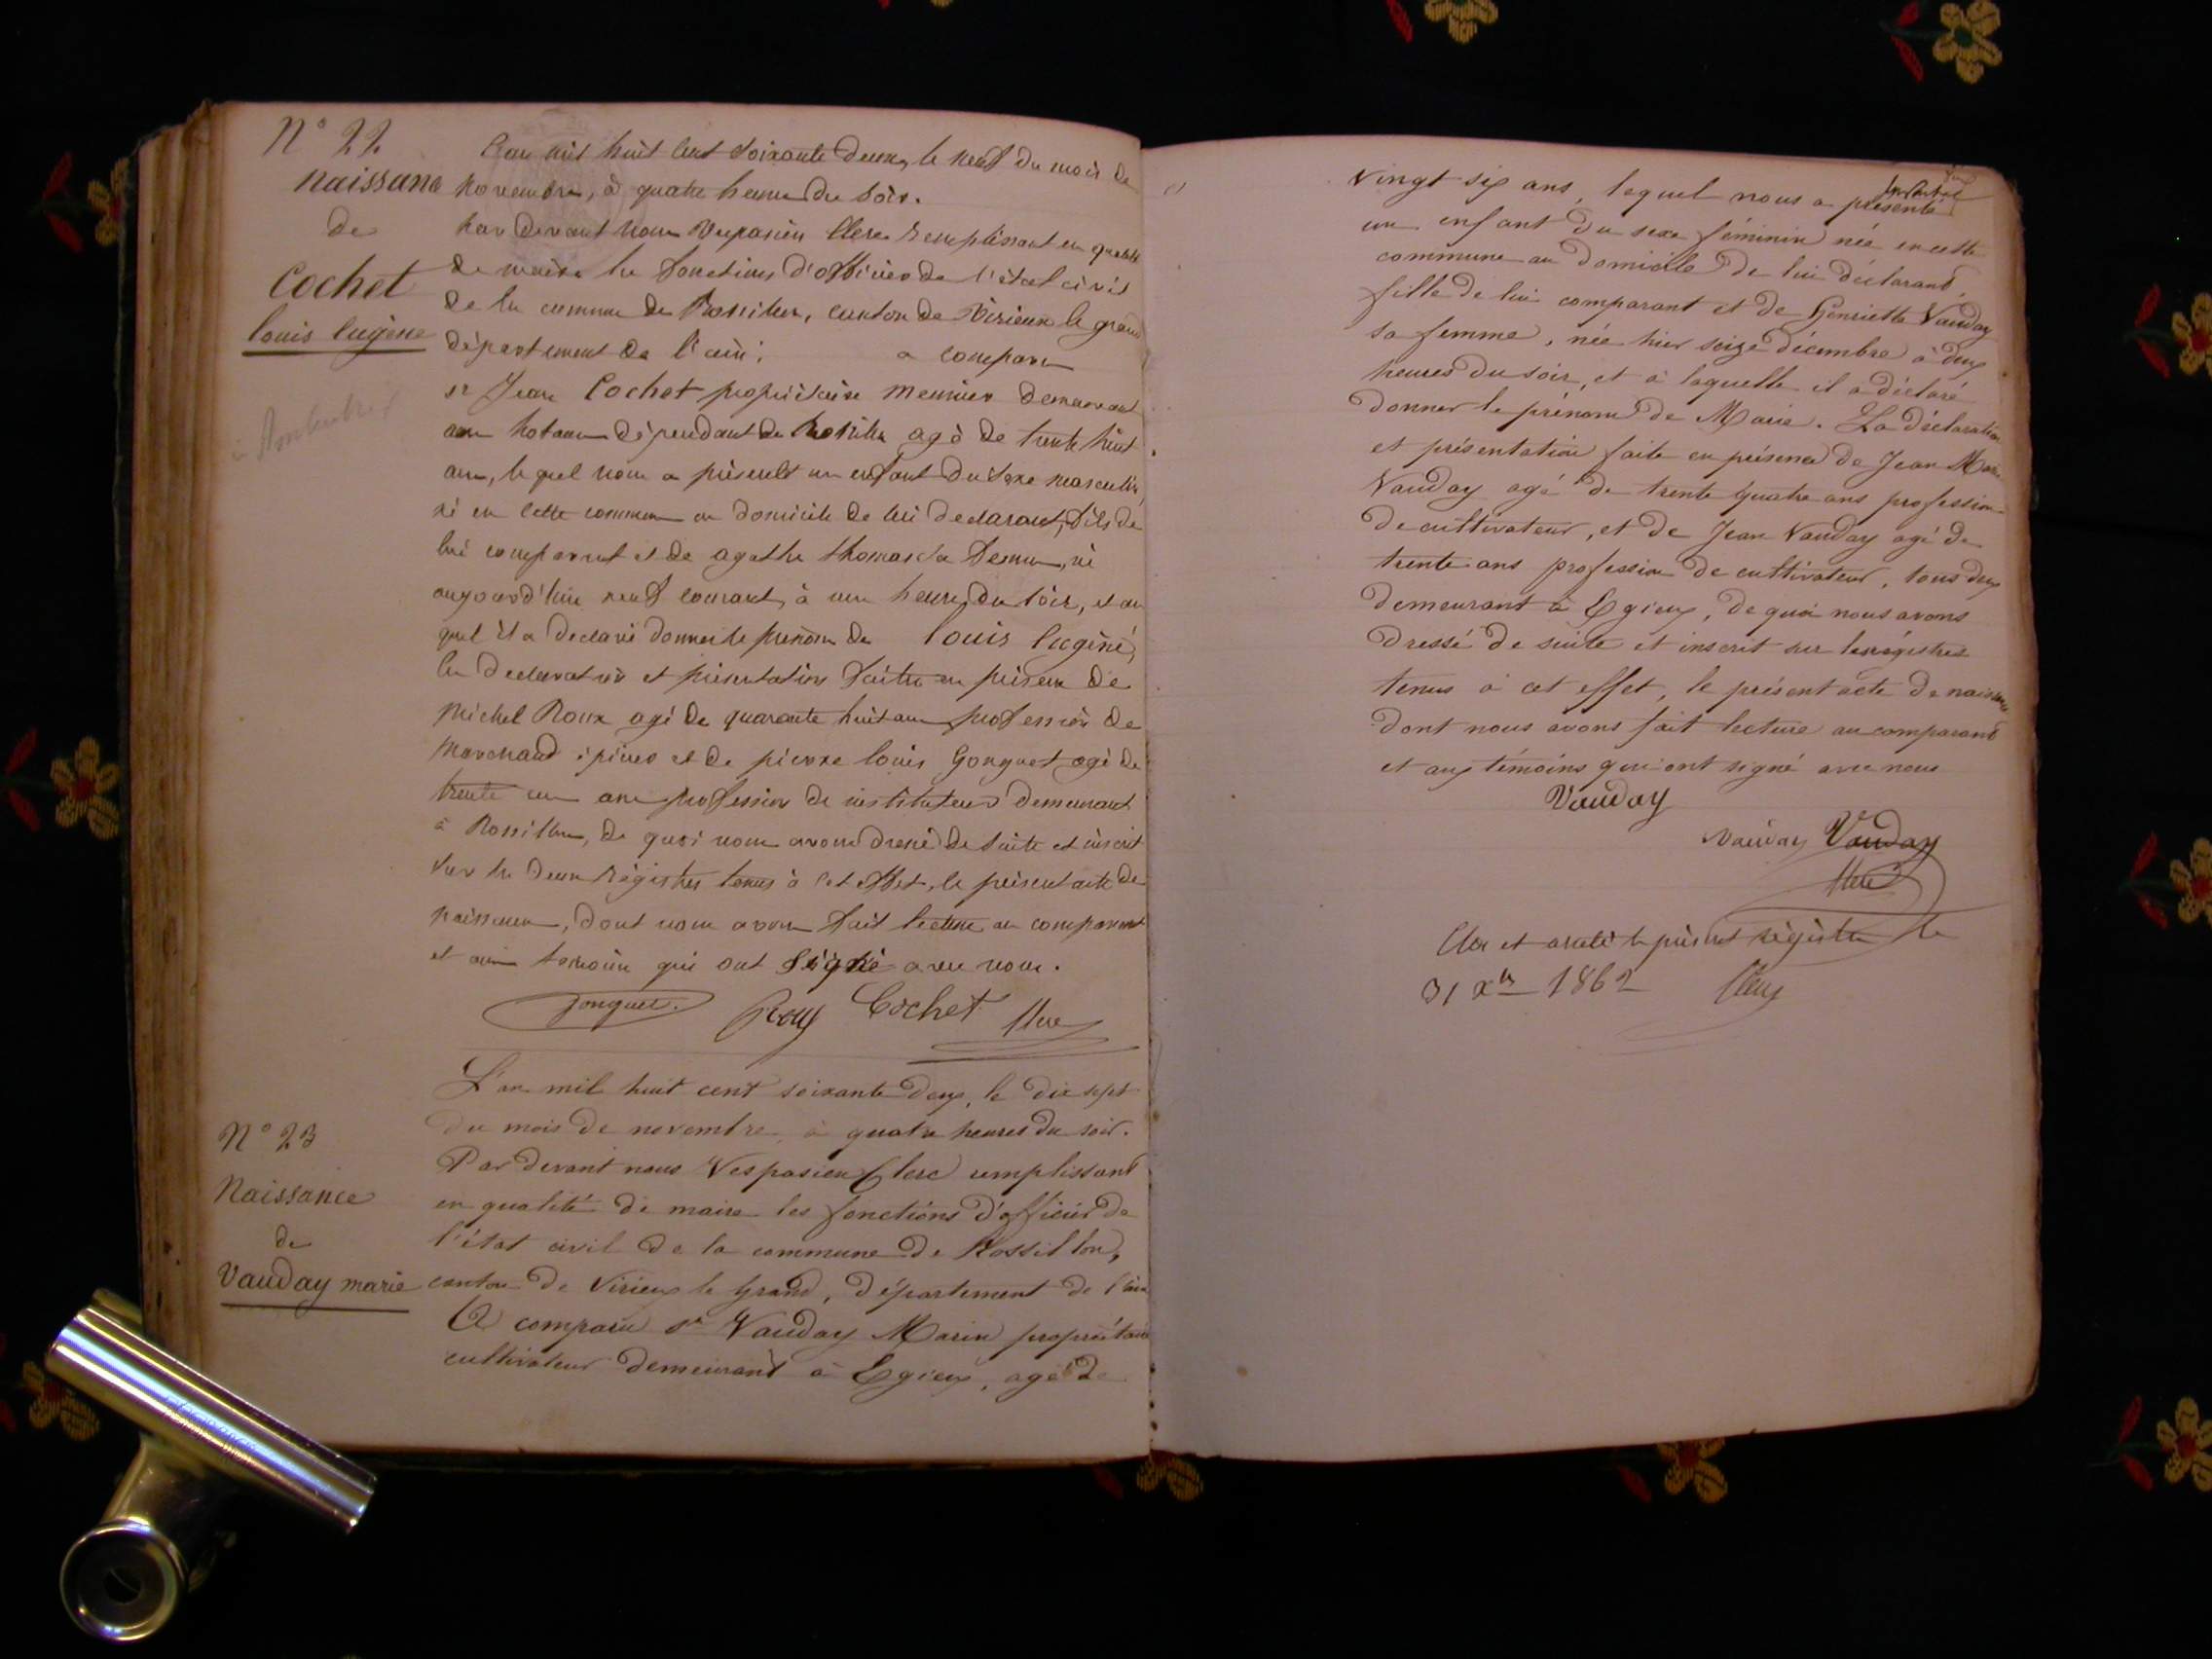 N° 22
naissance
de
Cochet
louis Eugène
L'an mil huit cent soixante deux, le neuf du mois de
novembre, à quatre heures du soir.
Par devant nous Vespasien Clerc remplissant en qualité
de maire les fonctions d'officier de l'état civil
de la commune de Rossillon, canton de Virieux le grand
département de l'ain; a comparu
sr Jean Cochet propriétaire meunier demeurant
dépendant de Rossillon agé de trente huit
ans, lequel nous a présenté un enfant du sexe masculin,
né en cette commune au domicile de lui declarant, fils de
lui comparant et de agathe thomas sa femme, né
aujourd'hui neuf courant, à une heure du soir, et au
quel il a declaré donner le prenom de louis Eugène,
la declaration et présentation faites en présence de
Michel Roux agé de quarante huit ans profession de
marchand épicier et de pierre louis Gonguet agé de
trente un ans profession de instituteur demeurant
à Rossillon, de quoi nous avons dressé de suite et inscrit
sur les deux régistres tenus à cet effet, le présent acte de
naissance, dont nous avons fait lecture au comparant
et aux temoins qui ont signé avec nous.
Gonguet. Roux Cochet Clerc
N° 23
Naissance
de
Vauday marie
L'an mil huit cent soixante deux, le dix sept
du mois de novembre à quatre heures du soir.
Par devant nous Vespasien Clerc remplissant
en qualité de maire les fonctions d'officier de
l'état civil de la commune de Rossillon,
canton de Virieux le Grand, département de l'ain
A comparu sr Vauday Marin propriétaire
cultivateur demeurant à Egieux, agé de
vingt six ans, lequel nous a présenté
un enfant du sexe féminin née en cette
commune au domicile de lui déclarant,
fille de lui comparant et de Henriette Vauday
sa femme, née hier seize décembre à deux
heures du soir, et à laquelle il a déclaré
donner le prénom de Marie. La déclaration
et présentation faite en présence de Jean Marie
Vauday agé de trente quatre ans profession
de cultivateur, et de Jean Vauday agé de
trente ans profession de cultivateur, tous deux
demeurant à Egieux, de quoi nous avons
dressé de suite et inscrit sur les régistres
tenus à cet effet, le présent acte de naissance
dont nous avons fait lecture au comparant
et aux témoins qui ont signé avec nous
Vauday
Vauday Vauday
Clerc
Clos et arrêté le présent régistre le
31 Xbre 1862 Clerc